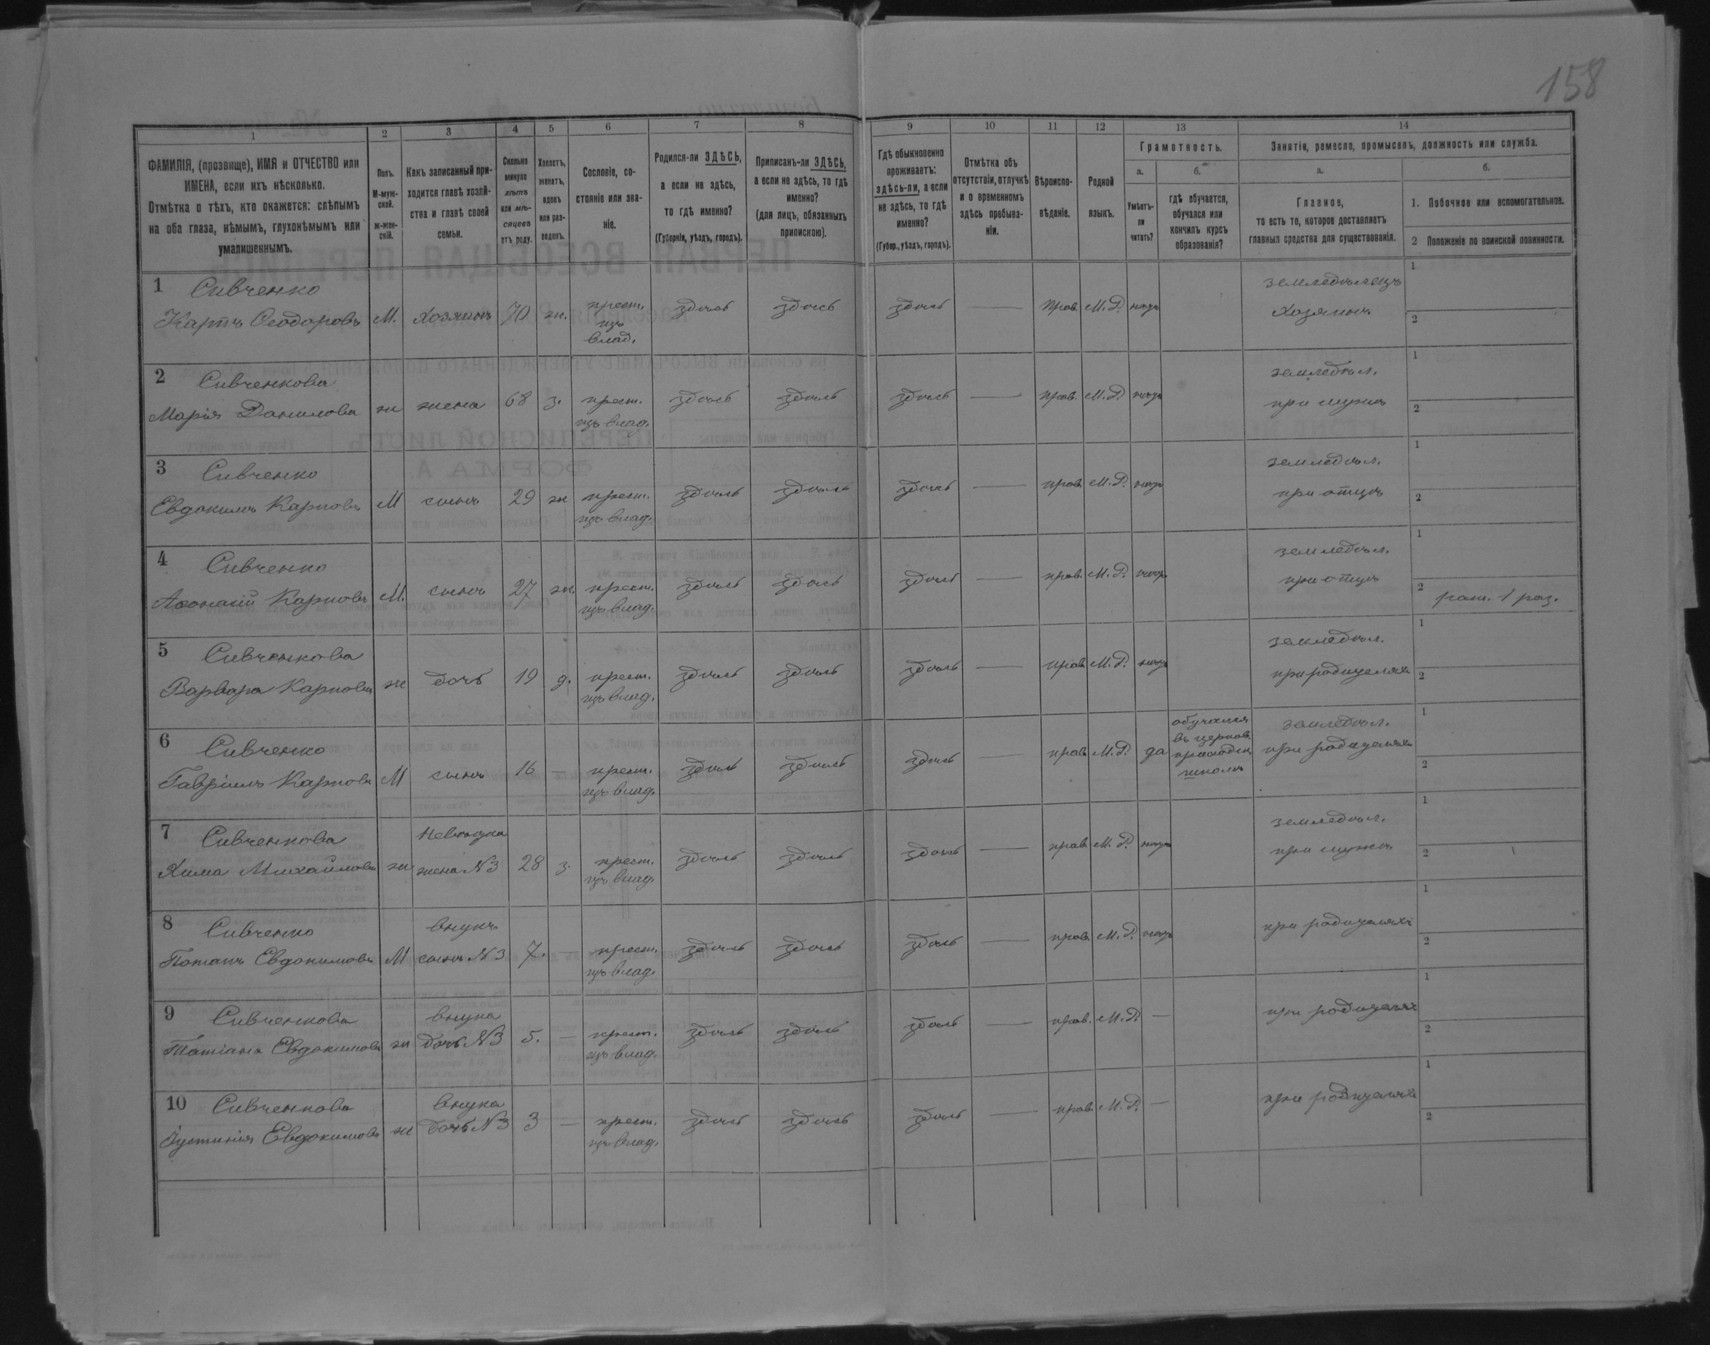 158
1 2 3 4 5 6 7 8 9 10 11 12 13 14
ФАМИЛІЯ, (прозвище), ИМЯ и ОТЧЕСТВО или
ИМЕНА, если ихъ нѣсколько.
Отмѣтка о тѣхъ, кто окажется: слѣпымъ
на оба глаза, нѣмымъ, глухонѣмымъ или
умалишеннымъ.
Полъ.
М-муж-
ской.
Ж-жен-
скій.
Какъ записанный при-
ходится главѣ хозяй-
ства и главѣ своей
семьи.
Сколько
минуло
лѣтъ
или мѣ-
сяцевъ
отъ роду.
Холостъ,
женатъ,
вдовъ
или раз-
веденъ.
Сословіе, со-
стояніе или зва-
ніе.
Родился-ли ЗДѢСЬ,
а если не здѣсь,
то гдѣ именно?
(Губернія, уѣздъ, городъ).
Приписанъ-ли ЗДѢСЬ,
а если не здѣсь, то гдѣ
именно?
(для лицъ, обязанныхъ
припискою).
Гдѣ обыкновенно
проживаетъ:
здѣсь-ли, а если
не здѣсь, то гдѣ
именно?
(Губер., уѣздъ, городъ).
Отмѣтка объ
отсутствіи, отлучкѣ
и о временномъ
здѣсь пребыва-
ніи.
Вѣроиспо-
вѣданіе.
Родной
языкъ.
Грамотность.
а.
Умѣетъ-
ли
читать?
б.
гдѣ обучается,
обучался или
кончилъ курсъ
образованія?
Занятіе, ремесло, промыселъ, должность или служба.
а.
Главное,
то есть то, которое доставляетъ
главныя средства для существованія.
б.
1. Побочное или вспомогательное.
2 Положеніе по воинской повинности.
1 Сивченко
Карпъ Ѳеодоровъ М. Хозяинъ 70 ж. крест. здѣсь здѣсь здѣсь — Прав. М.Р. нѣтъ
изъ
влад.
земледѣлецъ
Хозяинъ
1
2
2 Сивченкова
Марія Данилова ж жена 68 з. крест. здѣсь здѣсь здѣсь — прав. М.Р. нѣтъ
изъ влад.
земледѣл.
при мужѣ
1
2
3 Сивченко
Евдокимъ Карповъ М сынъ 29 ж крест. здѣсь здѣсь здѣсь — прав. М.Р. нѣтъ
изъ влад.
земледѣл.
при отцѣ
1
2
4 Сивченко
Аѳонасій Карповъ М. сынъ 27 ж. крест. здѣсь здѣсь здѣсь — прав. М.Р. нѣтъ
изъ влад.
земледѣл.
при отцѣ
1
2 рат. 1 раз.
5 Сивченкова
Варвара Карпова ж дочь 19 д. крест. здѣсь здѣсь здѣсь — прав. М.Р. нѣтъ
изъ влад.
земледѣл.
при родителяхъ
1
2
6 Сивченко
Гавріилъ Карповъ М сынъ 16 — крест. здѣсь здѣсь здѣсь — прав. М.Р. да
изъ влад.
обучался
въ церков.
приходск.
школѣ
земледѣл.
при родителяхъ
1
2
7 Сивченкова
Хима Михайлова ж
невѣстка
жена №3 28 з. крест. здѣсь здѣсь здѣсь — прав. М.Р. нѣтъ
изъ влад.
земледѣл.
при мужѣ
1
2
8 Сивченко
Потапъ Евдокимовъ М
внукъ
сынъ №3 7. — крест. здѣсь здѣсь здѣсь — прав. М.Р. нѣтъ
изъ влад.
при родителяхъ
1
2
9 Сивченкова
Татіана Евдокимова ж
внука
дочь №3 5. — крест. здѣсь здѣсь здѣсь — прав. М.Р. —
изъ влад.
при родителяхъ
1
2
10 Сивченкова
Іустинія Евдокимова ж
внука
дочь №3 3 — крест. здѣсь здѣсь здѣсь — прав. М.Р. —
изъ влад.
при родителяхъ
1
2